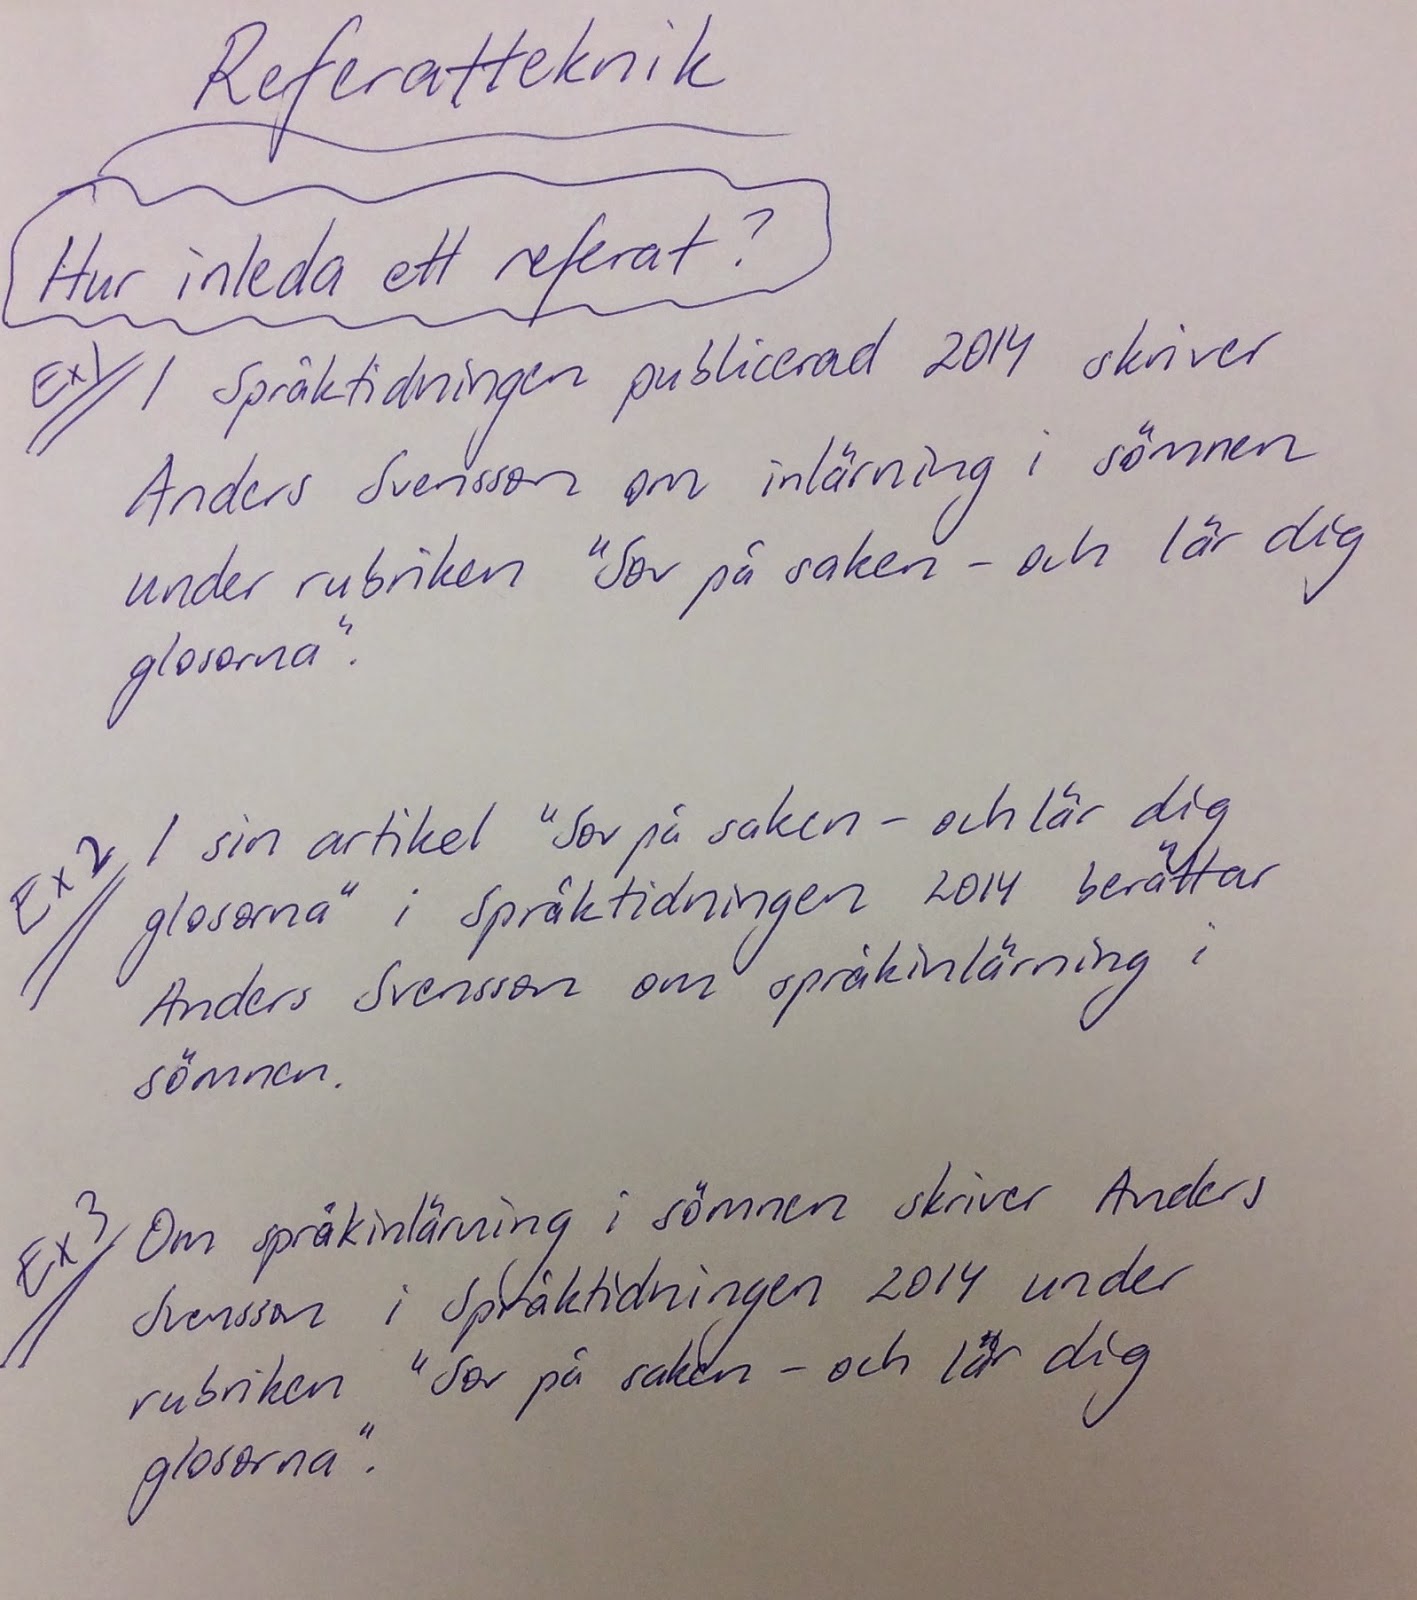 Referatteknik
Hur inleda ett referat?
Ex1 I Språktidningen publicerad 2014 skriver
Anders Svensson om inlärning i sömnen
under rubriken "Sov på saken - och lär dig
glosorna".
Ex2 I sin artikel "Sov på saken - och lär dig
glosorna" i Språktidningen 2014 berättar
Anders Svensson om språkinlärning i
sömnen.
Ex3 Om språkinlärning i sömnen skriver Anders
Svensson i Språktidningen 2014 under
rubriken "Sov på saken - och lär dig
glosorna".